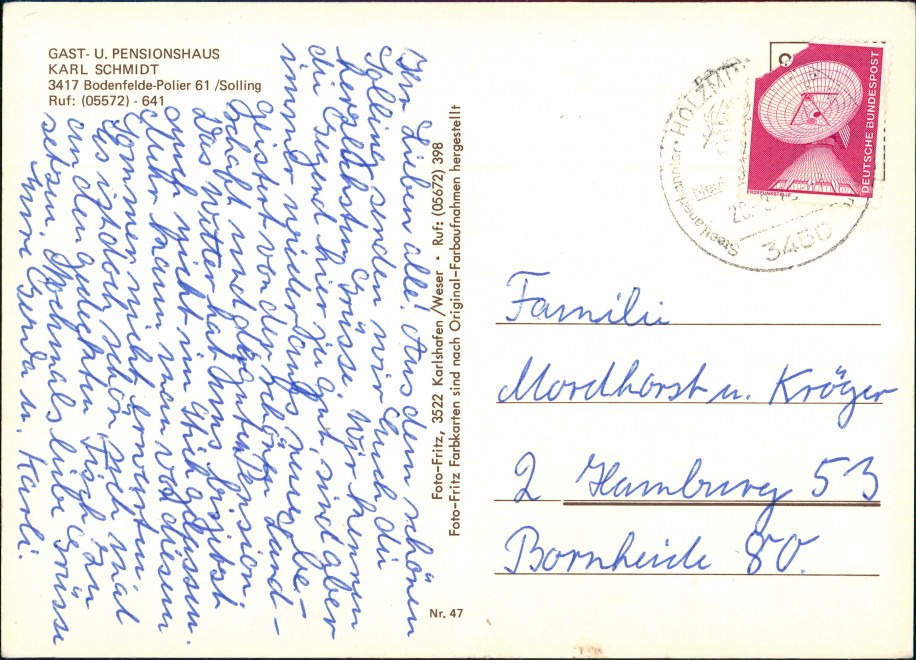 GAST- U. PENSIONSHAUS
KARL SCHMIDT
3417 Bodenfelde-Polier 61 /Solling
Ruf: (05572) - 641
Ihr Lieben alle! Aus dem schönen
Solling senden wir Euch die
herzlichsten Grüsse. Wir kennen
die Gegend hier ja gut, sind aber
immer wieder aufs neue be-
geistert von der schönen Land-
schaft und der guten Pension.
Das Wetter hat uns bis jetzt
auch nicht im Stich gelassen.
Mehr kann man von diesem
Sommer nicht erwarten.
Es ist doch schön, sich mal
an den gedeckten Tisch zu
setzen. Nochmals liebe Grüsse
Eure Gerda u. Karli.
Foto-Fritz, 3522 Karlshafen/Weser • Ruf: (05672) 398
Foto-Fritz Farbkarten sind nach Original-Farbaufnahmen hergestellt
Nr. 47
HOLZMI
3450
DEUTSCHE BUNDESPOST
ERDFUNKSTELLE
Familie
Mordhorst u. Kröger
2 Hamburg 53
Bornheide 80.